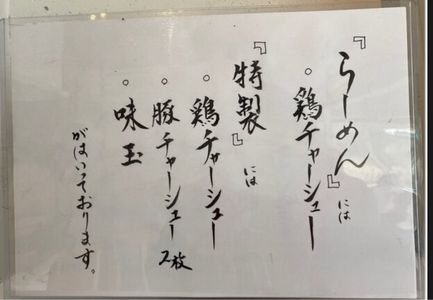 『らーめん』には
。鶏チャーシュー
『特製』には
。鶏チャーシュー
。豚チャーシュー2枚
。味玉
がはいっております。